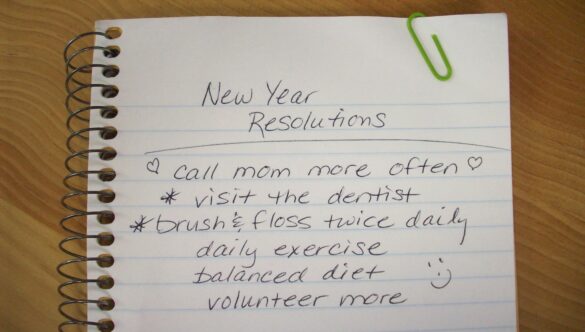 New Year
Resolutions
♡ call mom more often ♡
* visit the dentist
* brush & floss twice daily
daily exercise
balanced diet :)
volunteer more